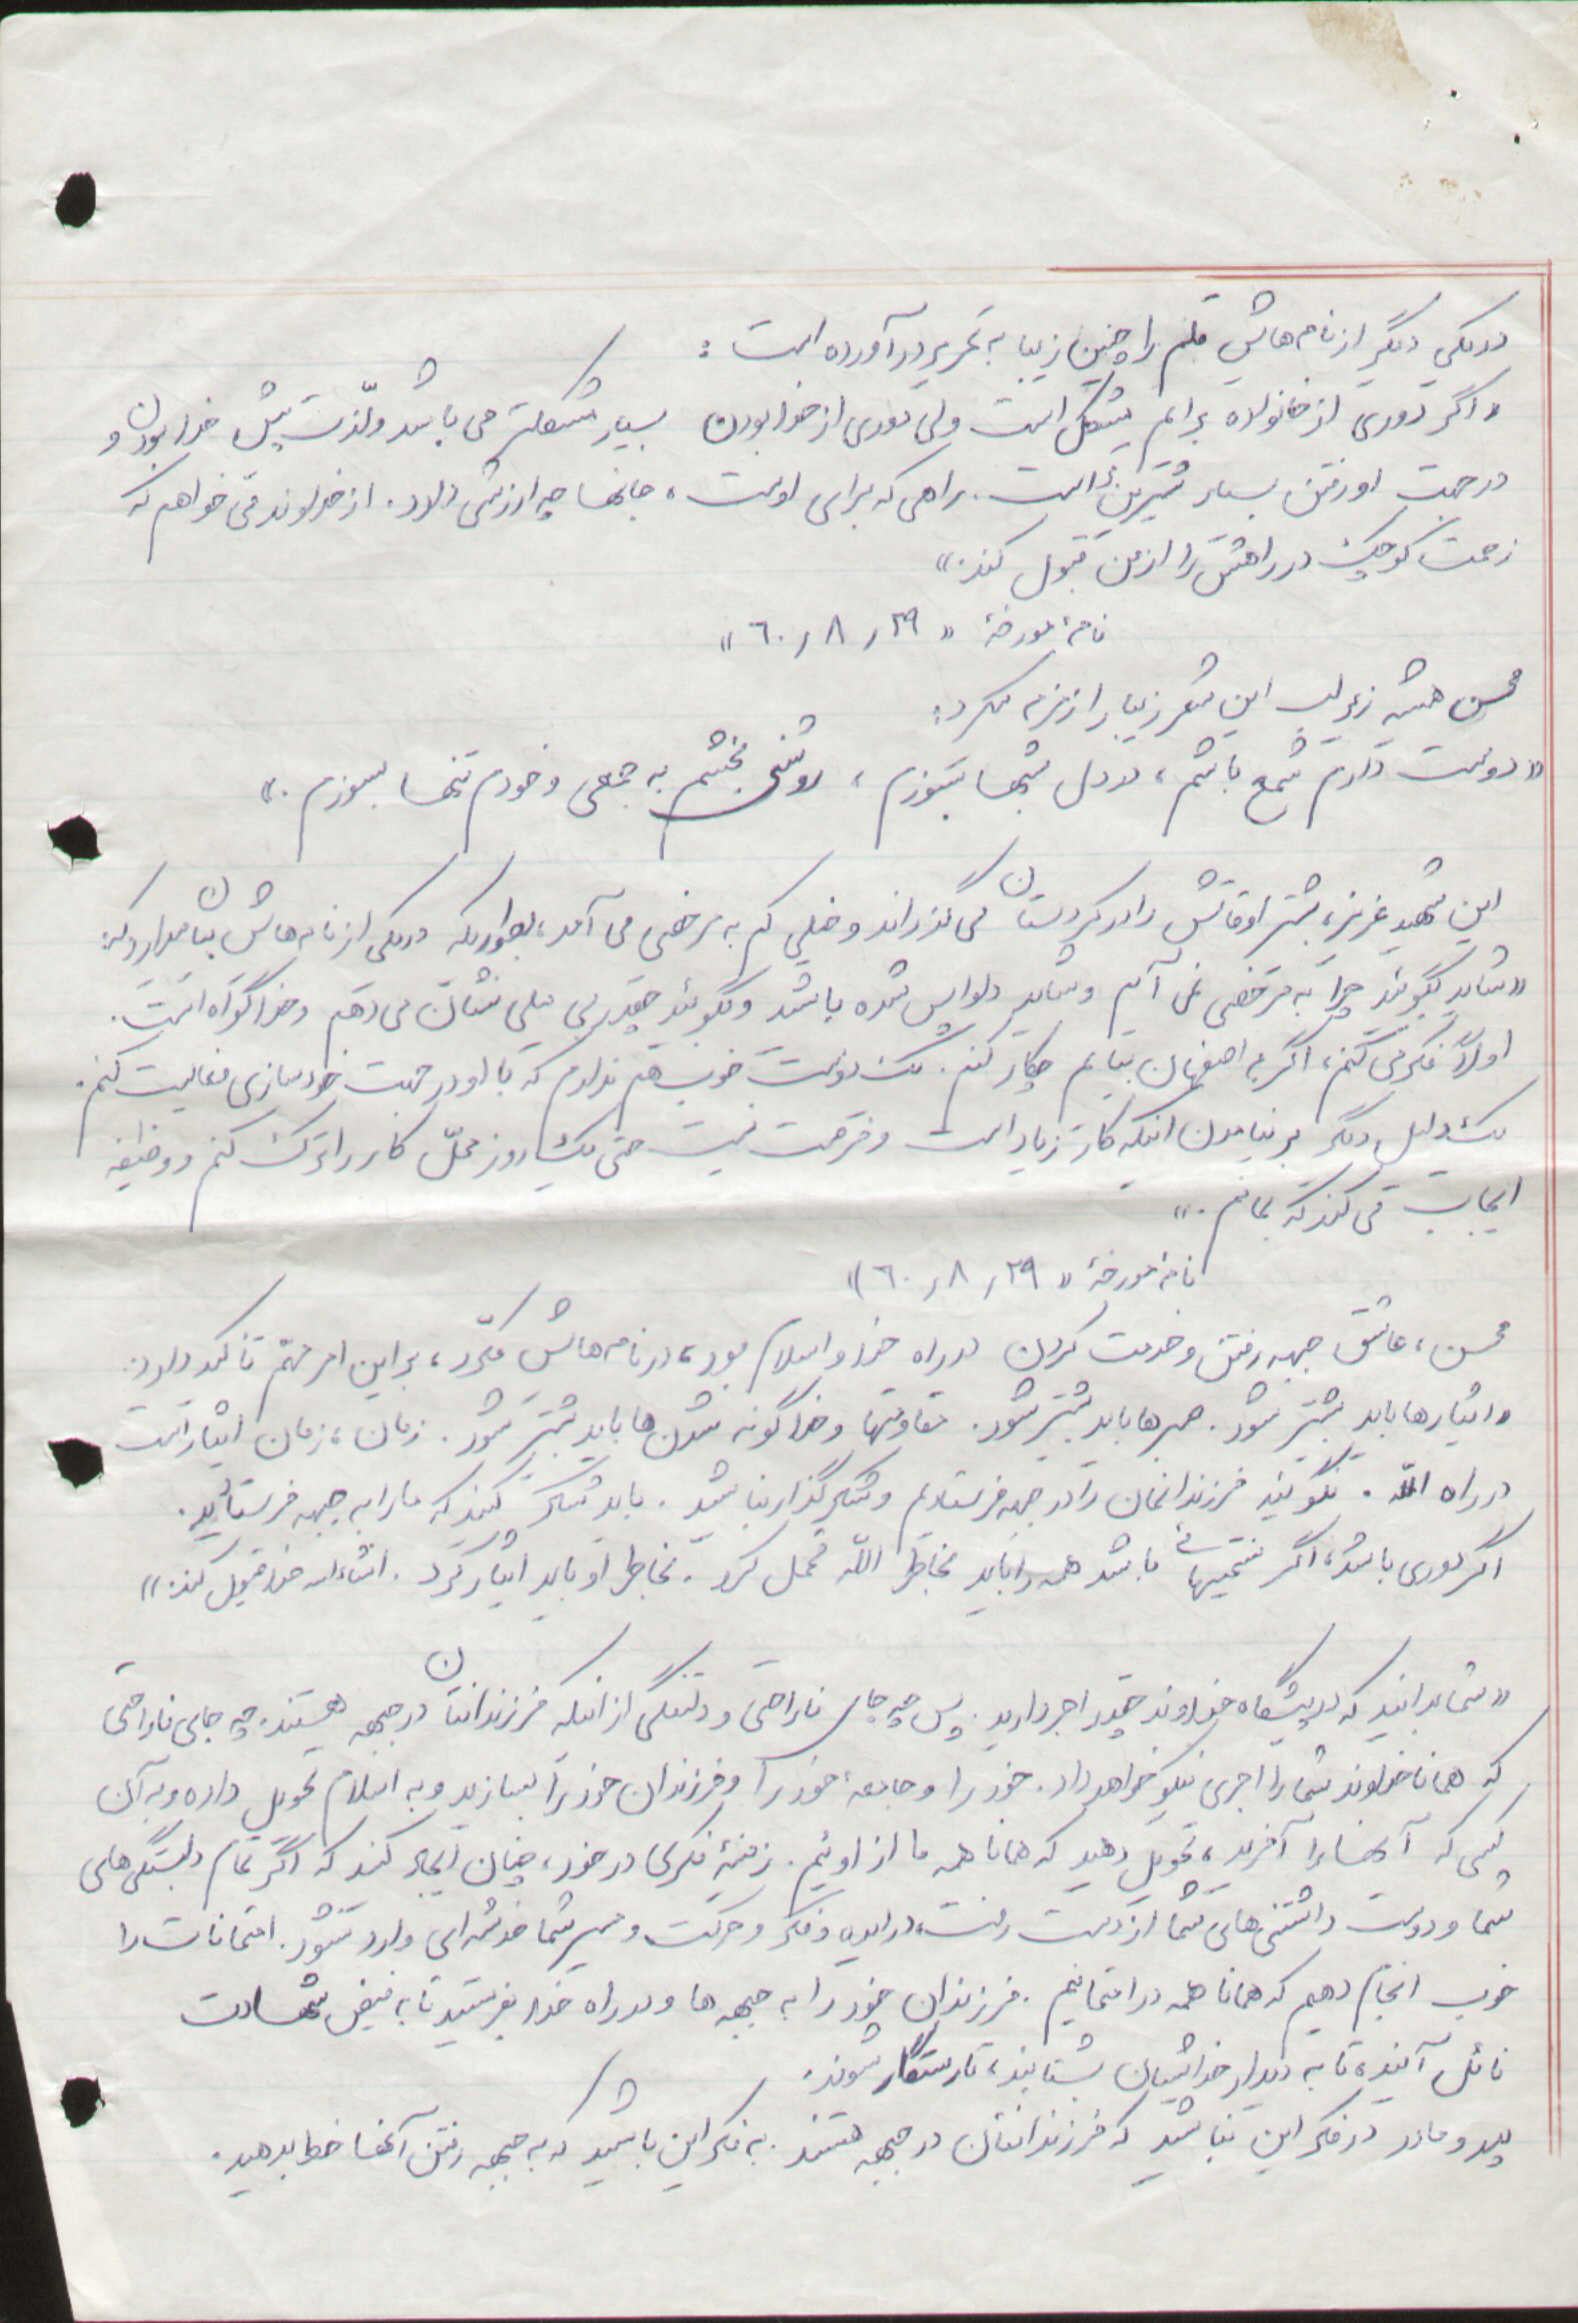 در یکی دیگر از نامه‌هایش قلم را چنین زیبا به تحریر در آورده است :
« اگر دوری از خانواده برایم مشکل است ولی دوری از خدا بودن بسیار مشکلتر می باشد و لذت پیش خدا بودن و
در جهت او رفتن بسیار شیرین است. راهی که برای اوست ، جانها چه ارزشی دارد. از خداوند می خواهم که
زحمت کوچک در راهش را از من قبول کند.»
نامۀ مورخۀ « ۶۰/۸/۲۹ »
محسن همیشه زیر لب این شعر زیبا را زمزمه میکرد:
« دوست دارم شمع باشم ، در دل شبها بسوزم ، روشنی بخشم به جمعی و خودم تنها بسوزم .»
این شهید عزیز، بیشتر اوقاتش را در کردستان می گذراند و خیلی کم به مرخصی می آمد، بطوریکه در یکی از نامه‌هایش بیان میدارد که:
« شاید بگوئید چرا به مرخصی نمی آیم و شاید دلواپس شده باشید و بگوئید چقدر بی میلی نشان می دهم و خدا گواه است.
اولاً فکر می کنم، اگر به اصفهان بیایم چکار کنم. یک دوست خوب هم ندارم که با او در جهت خودسازی فعالیت کنم.
یک دلیل دیگر بر نیامدن اینکه کار زیاد است و فرصت نیست حتی یک روز محلّ کار را ترک کنم و وظیفه
ایجاب می کند که بمانم .»
نامۀ مورخۀ « ۶۰/۸/۲۹ »
محسن، عاشق جبهه رفتن و خدمت کردن در راه خدا و اسلام بود، در نامه‌هایش مکرّر، بر این امر مهمّ تأکید دارد:
« ایثارها باید بیشتر شود. صبرها باید بیشتر شود. مقاومتها و خداگونه شدن‌ها باید بیشتر شود. زمان، زمان ایثار است
در راه اللّه . نگوئید فرزندانمان را در جبهه فرستادیم و شکرگذار نباشید . باید تشکر کنید که ما را به جبهه فرستادید.
اگر دوری باشد، اگر سختیهایی باشد همه را باید بخاطر اللّه تحمل کرد . بخاطر او باید ایثار کرد . انشاءاله خدا قبول کند.»
« شما بدانید که در پیشگاه خداوند چقدر اجر دارید. پس چه جای ناراحتی و دلتنگی از اینکه فرزندانتان در جبهه هستند. چه جای ناراحتی
که همانا خداوند شما را اجری نیکو خواهد داد. خود را و جامعۀ خود را و فرزندان خود را بسازید و به اسلام تحویل داده و به آن
کسی که آنها را آفرید، تحویل دهید که همانا همه ما از اوئیم . زمینۀ فکری در خود، چنان ایجاد کنید که اگر تمام دلبستگی‌های
شما و دوست داشتنی‌های شما از دست رفت، در ایده و فکر و حرکت و مسیر شما خدشه‌ای وارد نشود. امتحانات را
خوب انجام دهیم که همانا همه در امتحانیم . فرزندان خود را به جبهه ها و در راه خدا بفرستید تا به فیض شهادت
نائل آیند، تا به دیدار خدایشان بشتابند، تا رستگار شوند.
پدر و مادر در فکر این نباشید که فرزندانتان در جبهه هستند . به فکر این باشید که به جبهه رفتن آنها خط بدهید.